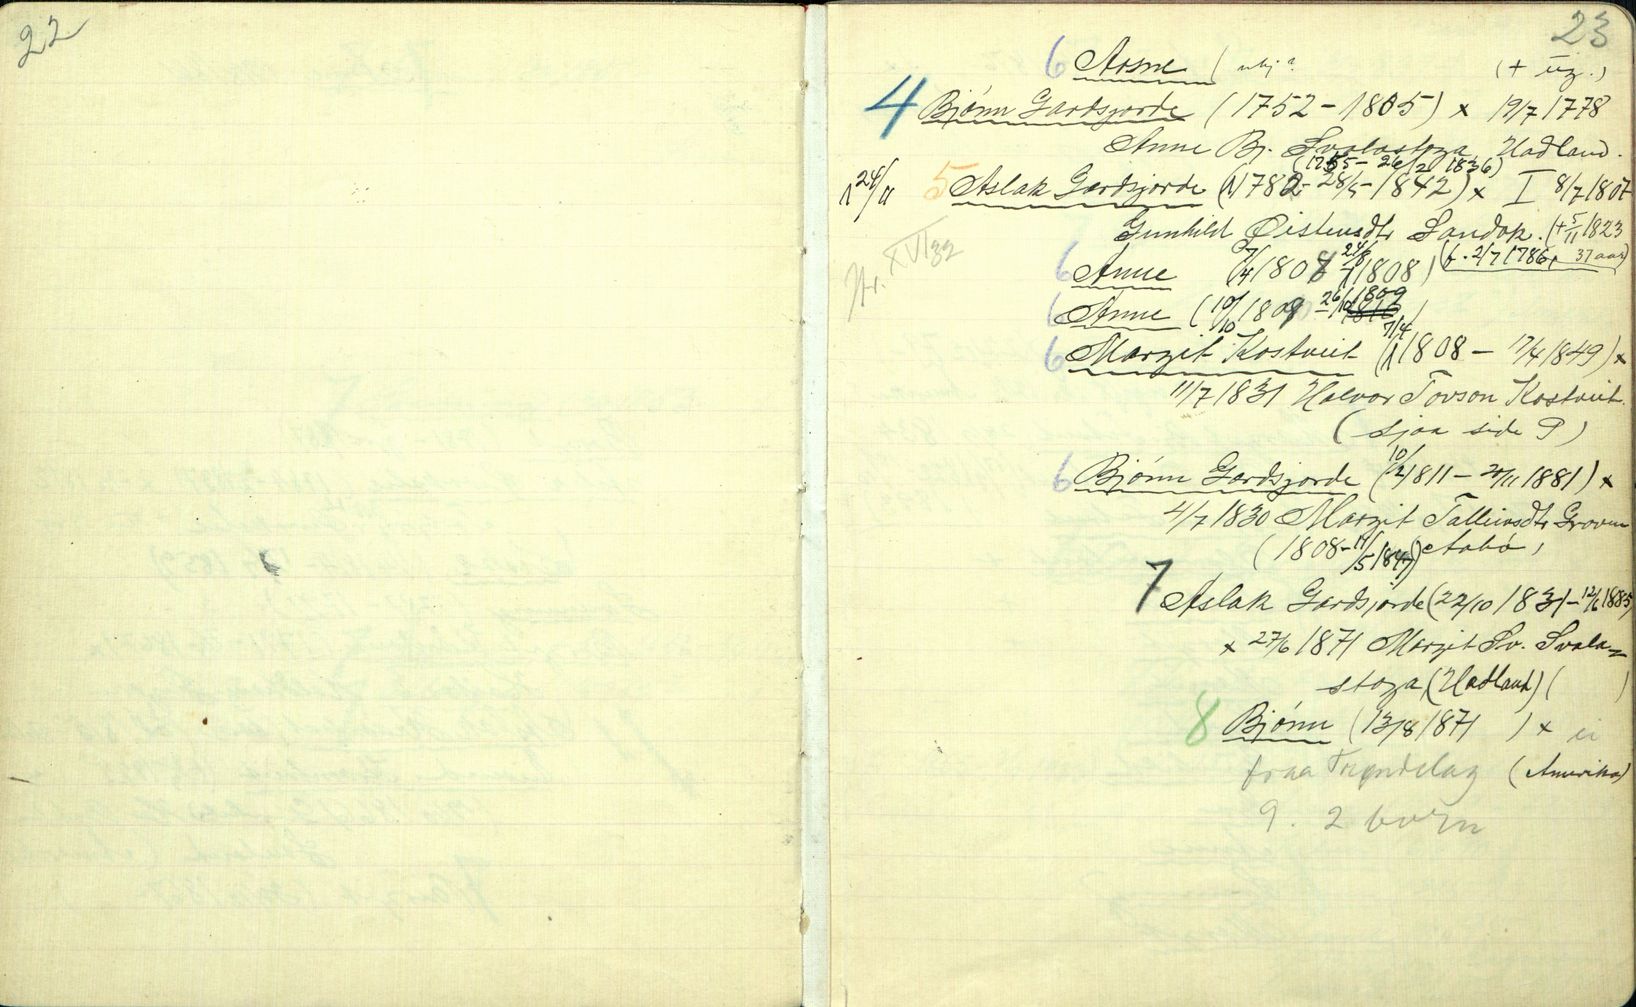 22
23
6 Asne ( (+ ug.)
4 Bjónn Gardsjorde (1752-1805) x 19/7 1778
Anne Bj. Svalastoga, Hadland.
(1755- 26/2 1836)
24/11 5 Aslak Gardsjorde (1782- 28/5-1842) x I 8/7 1807
Gunhild Øistensdtr Sandok. (+ 5/11 1823
6 Anne (7/4 1808 24/8 1808) (f. 2/7 1786, 37 aar)
6 Anne (10/10 1809 - 26/10 1809)
6 Margit Kostveit (7/4 1808 - 17/4 1849) x
11/7 1831 Halvor Tovson Kostveit.
(sjaa side 9)
6 Bjónn Gardsjorde (10/2 1811 - 20/11 1881) x
4/7 1830 Margit Talleivsdtr Groven
(1808-11/5 1847) Aabø,
7 Aslak Gardsjorde (22/10 1831-12/6 1885)
x 27/6 1871 Margit Sv. Svala=
stoga, (Hadland) ( )
8 Bjónn (13/8 1871 ) x ei
fraa Trøndelag (Amerika)
9. 2 born